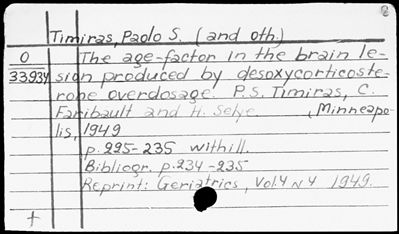 Timiras, Paolo S. (and oth.)
O The age-factor in the brain le-
33934 sion produced by desoxycorticoste-
rone overdosage. P.S. Timiras, C.
Faribault and H. Selye , Minneapo-
lis, 1949
p. 225-235 withill.
Bibliogr. p. 234-235
Reprint: Geriatrics, Vol. 4 N 4 1949.
+